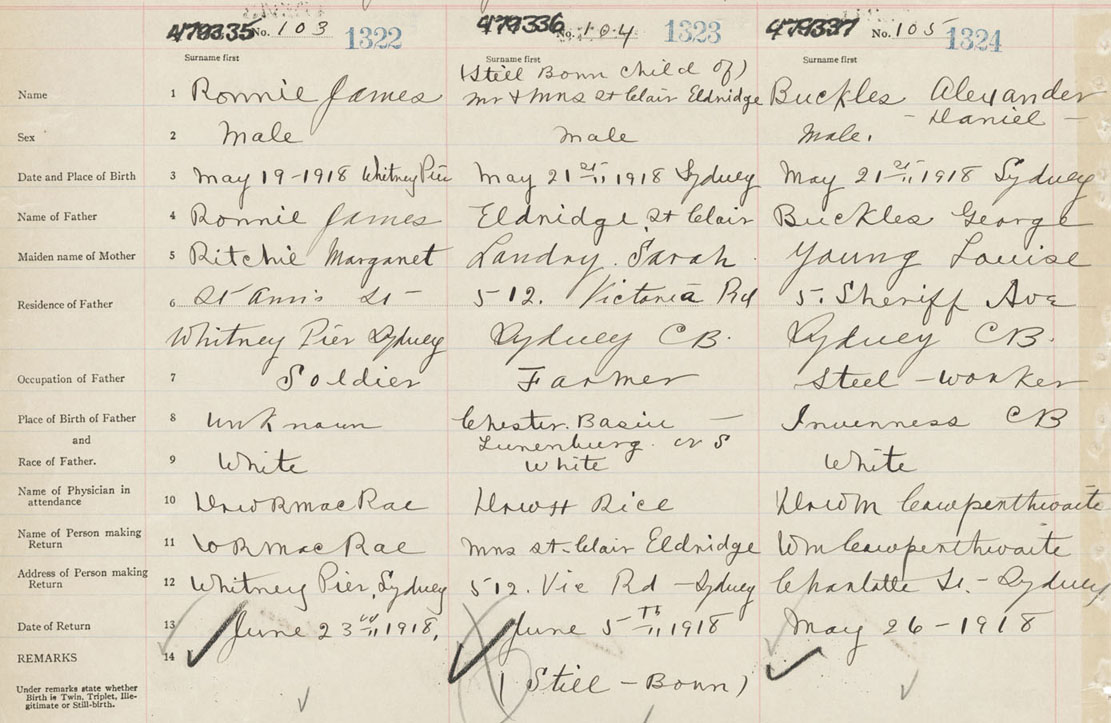 479335 No. 103 1322 479336 No. 104 1323 479337 No. 105 1324
Surname first Surname first Surname first
(Still Born child of)
Name 1 Ronnie James Mr & Mrs St Clair Eldridge Buckles Alexander
- Daniel -
Sex 2 Male Male Male.
Date and Place of Birth 3 May 19-1918 Whitney Pier May 21st 1918 Sydney May 21st 1918 Sydney
Name of Father 4 Ronnie James Eldridge, St Clair Buckles George
Maiden name of Mother 5 Ritchie Margaret Landry. Sarah Young Louise
Residence of Father 6 St Anns St - 512. Victoria Rd 5. Sheriff Ave
Whitney Pier Sydney Sydney CB. Sydney CB.
Occupation of Father 7 Soldier Farmer Steel - worker
Place of Birth of Father 8 unknown Chester. Basin - Inverness CB
and Lunenburg. N S
Race of Father. 9 White White White
Name of Physician in attendance 10 Dr W R MacRae Dr W H Rice Dr Wm Cowperthwaite
Name of Person making Return 11 W R MacRae Mrs St. Clair Eldridge Wm Cowperthwaite
Address of Person making Return 12 Whitney Pier, Sydney 512. Vic Rd - Sydney Charlotte St. - Sydney
Date of Return 13 June 23rd 1918, June 5th 1918 May 26-1918
REMARKS 14
(Still - Born)
Under remarks state whether
Birth is Twin, Triplet, Ille-
gitimate or Still-birth.